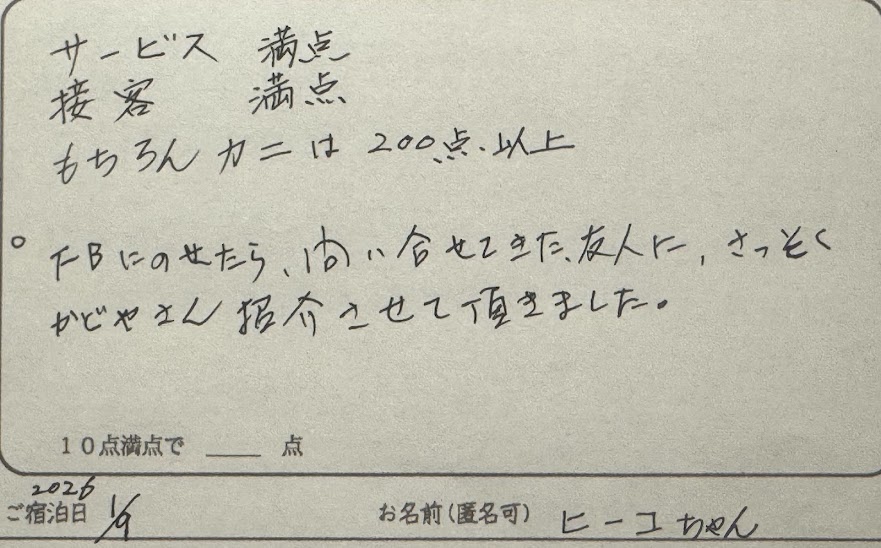 サービス 満点
接客 満点
もちろんカニは 200点以上
○ FBにのせたら、問い合せてきた、友人に、さっそく
かどやさん 招介させて頂きました。
10点満点で ____ 点
ご宿泊日 2026 1/9 お名前(匿名可) ヒーコちゃん